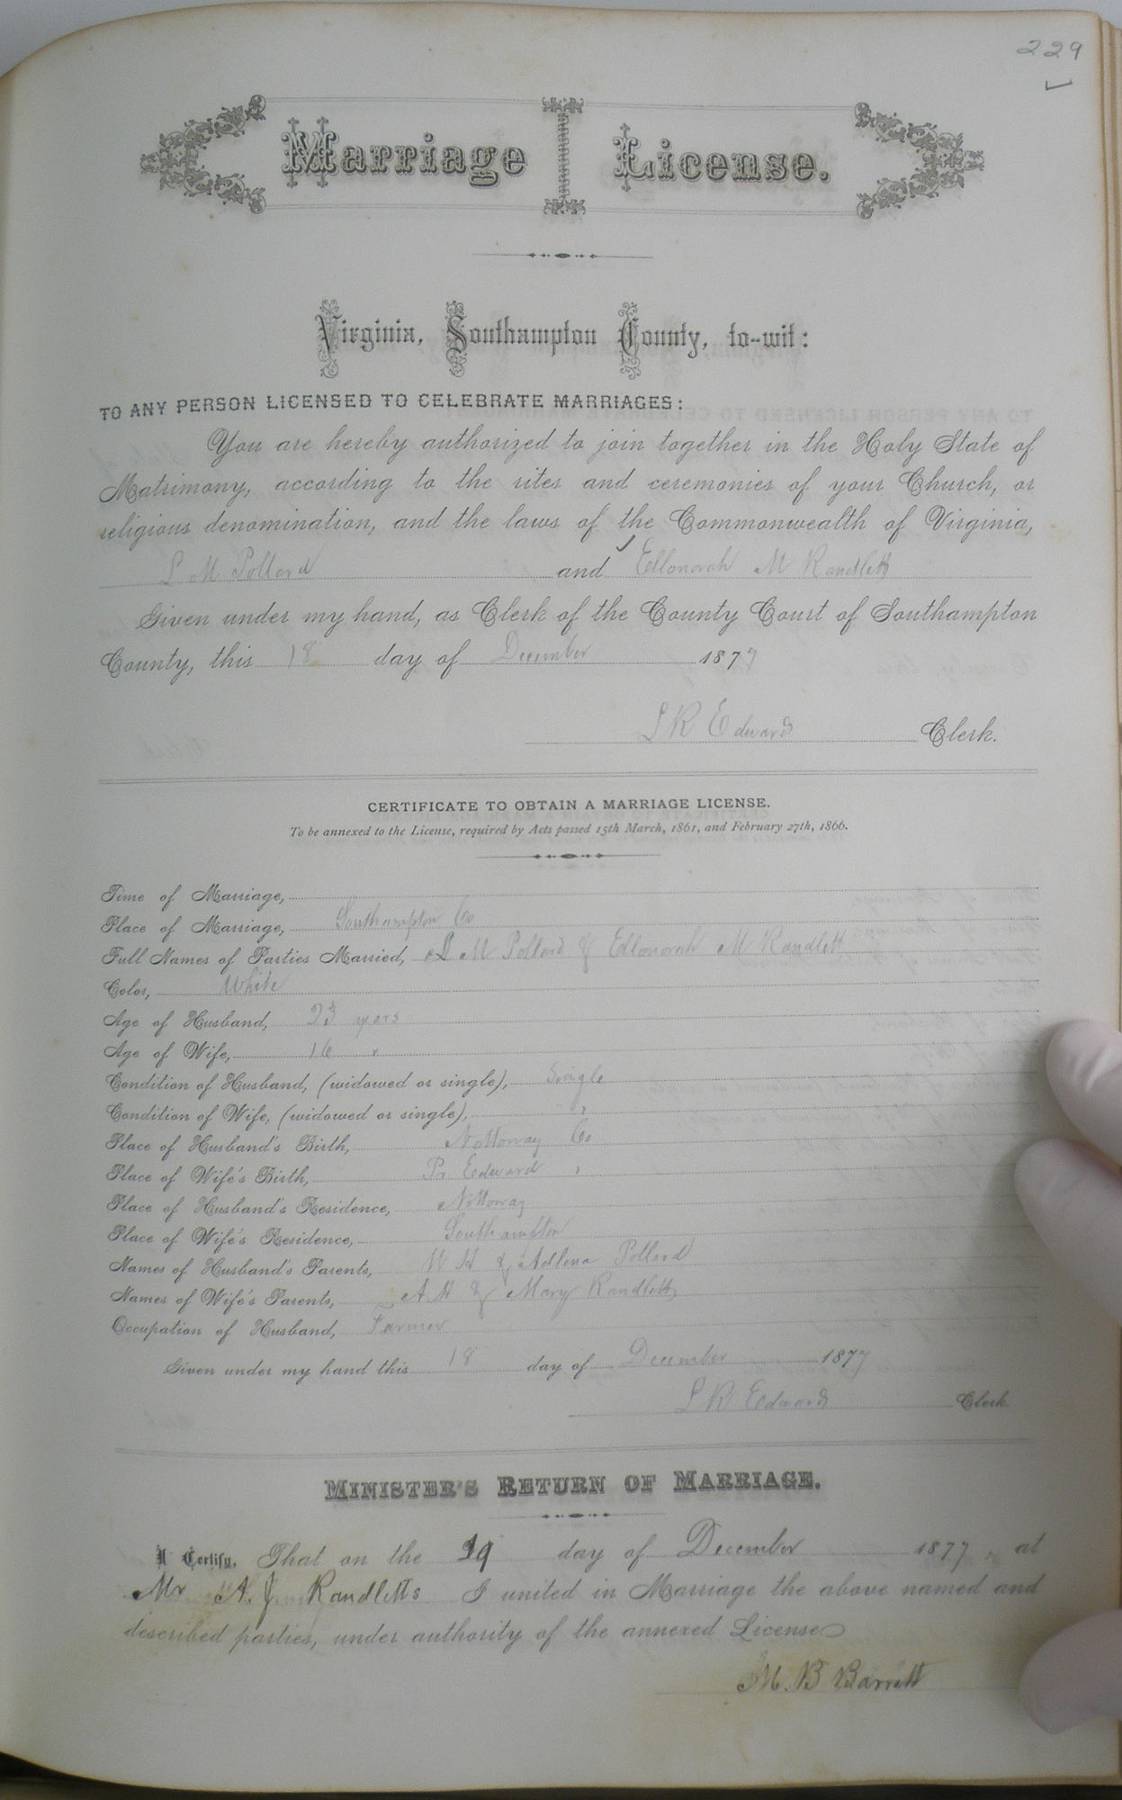 229
Marriage License.
Virginia, Southampton County, to-wit:
TO ANY PERSON LICENSED TO CELEBRATE MARRIAGES:
You are hereby authorized to join together in the Holy State of
Matrimony, according to the rites and ceremonies of your Church, or
religious denomination, and the laws of the Commonwealth of Virginia,
L M Pollard and Ellonorah M Randlett
Given under my hand, as Clerk of the County Court of Southampton
County, this 18 day of December 1877
L R Edwards Clerk.
CERTIFICATE TO OBTAIN A MARRIAGE LICENSE.
To be annexed to the License, required by Acts passed 15th March, 1861, and February 27th, 1866.
Time of Marriage,
Place of Marriage, Southampton Co
Full Names of Parties Married, L M Pollard & Ellonorah M Randlett
Color, White
Age of Husband, 23 years
Age of Wife, 16 "
Condition of Husband, (widowed or single), Single
Condition of Wife, (widowed or single), "
Place of Husband's Birth, Nottoway Co
Place of Wife's Birth, Pr. Edward "
Place of Husband's Residence, Nottoway
Place of Wife's Residence, Southampton
Names of Husband's Parents, W H & Adlena Pollard
Names of Wife's Parents, A H & Mary Randlett
Occupation of Husband, Farmer
Given under my hand this 18 day of December 1877
L R Edwards Clerk
MINISTER'S RETURN OF MARRIAGE.
I Certify, That on the 19 day of December 1877, at
Mr A. J. Randletts I united in Marriage the above named and
described parties, under authority of the annexed License
M. B Barrett